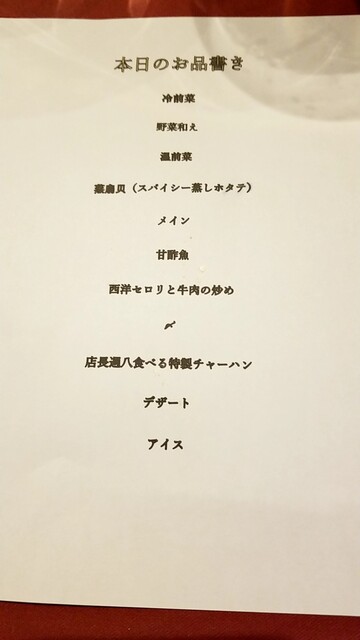 本日のお品書き
冷前菜
野菜和え
温前菜
蒸扇贝（スパイシー蒸しホタテ）
メイン
甘酢魚
西洋セロリと牛肉の炒め
〆
店長週八食べる特製チャーハン
デザート
アイス